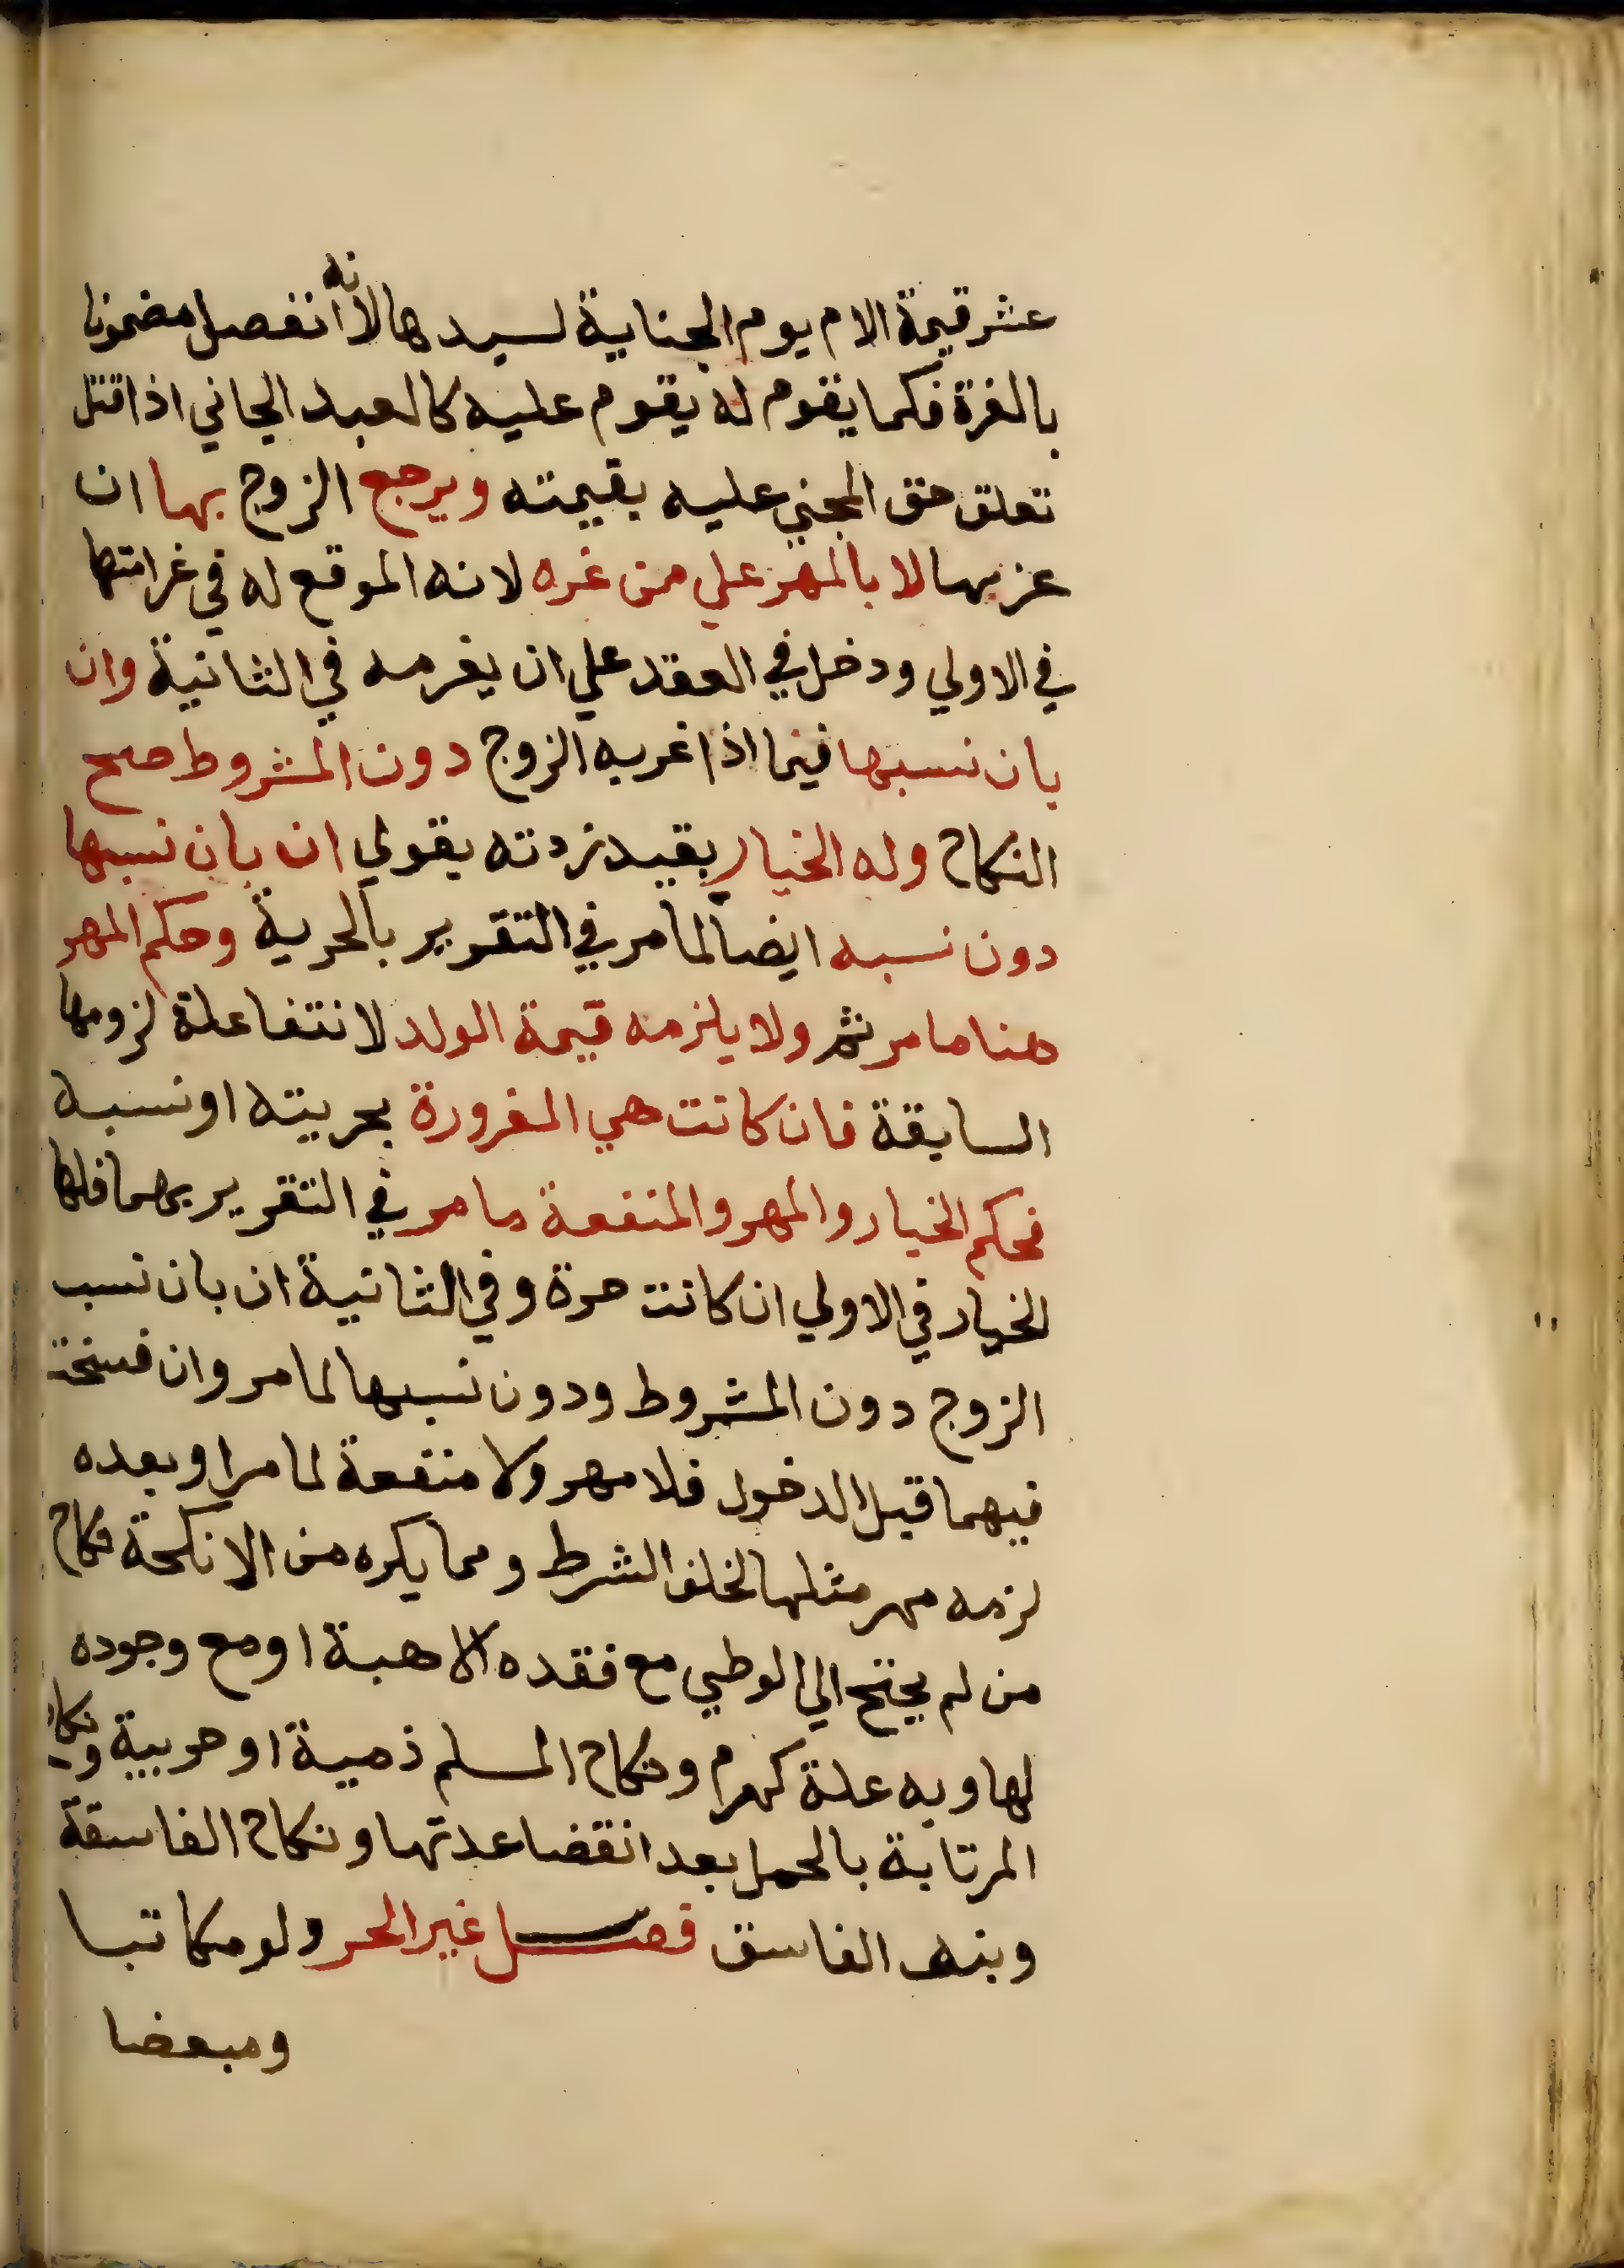 عشر قيمة الام يوم الجناية لسيدها لانه انفصل مضمونا
بالغرة فكما يقوم له يقوم عليه كالعبد الجاني اذا قتل
تعلق حق المجني عليه بقيمته ويرجع الزوج بها ان
غرمها لا بالمهر علي من غره لانه الموقع له في غرامتها
في الاولي ودخل في العقد علي ان يغرمه في الثانية وان
بان نسبها فيما اذا غر به الزوج دون المشروط صح
النكاح وله الخيار بقيد زدته بقولي ان بان نسبها
دون نسبه ايضا لما مر في التغرير بالحرية وحكم المهر
هنا ما مر ثم ولا يلزمه قيمة الولد لانتفا علة لزومها
السابقة فان كانت هي المغرورة بحريته او نسبه
فحكم الخيار والمهر والمنفعة ما مر في التغرير بهما فلها
الخيار في الاولي ان كانت حرة وفي الثانية ان بان نسب
الزوج دون المشروط ودون نسبها لما مر وان فسخت
فيهما قبل الدخول فلا مهر ولا منفعة لما مر او بعده
لزمه مهر مثلها لخلف الشرط ومما يكره من الانكحة نكاح
من لم يحتج الي الوطي مع فقده الاهبة او مع وجوده
لها وبه علة كهرم ونكاح المسلم ذمية او حربية ونكاح
المرتابة بالحمل بعد انقضا عدتها ونكاح الفاسقة
وبنت الفاسق فصل غير الحر ولو مكاتبا
ومبعضا